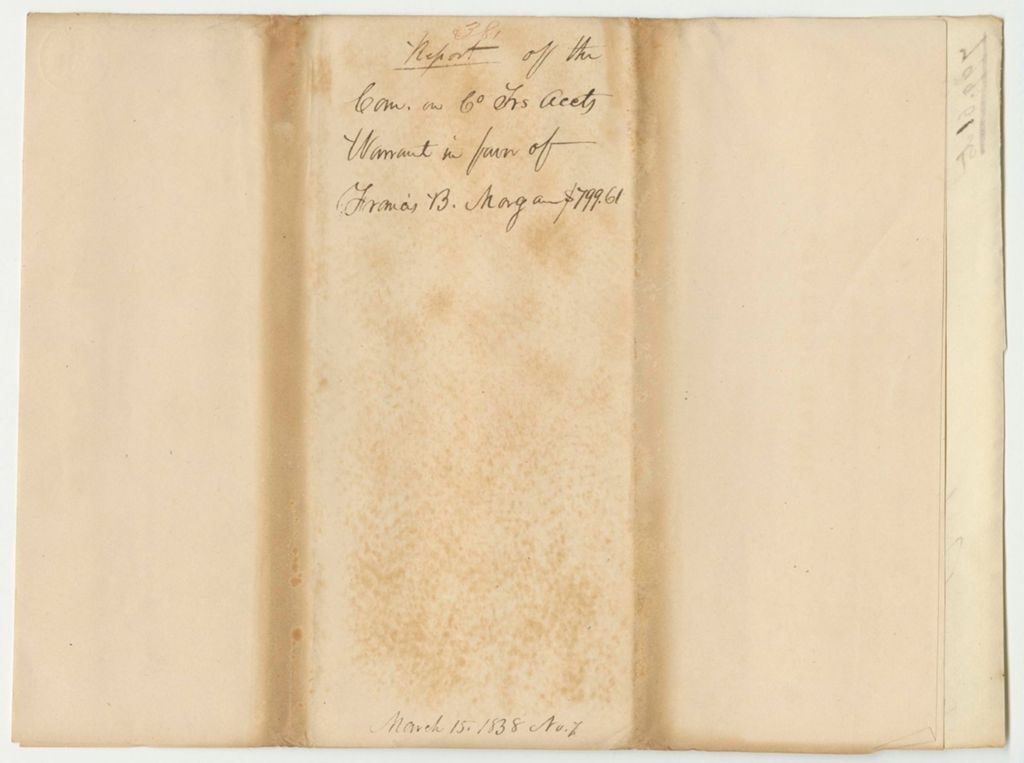 381
Report of the
Com. on Co Trs Accts
Warrant in favr of
Francis B. Morgan $799.61
March 15. 1838 No. 7